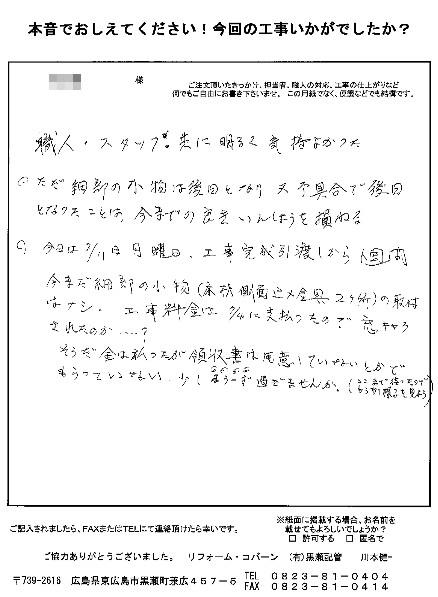 本音でおしえてください！今回の工事いかがでしたか？
様
ご注文頂いたきっかけ、担当者、職人の対応、工事の仕上がりなど
何でもご自由にお書き下さいませ。この用紙でなく、便箋などでも結構です。
職人・スタッフ共に明るく気持よかった
ただ細部の小物は後日となり 又不具合で後日
となったことは、今までの良きいんしょうを損ねる
今日は 月曜日、工事完成引渡しから1週間
今まだ細部の小物(金具2ヶ所)の取付
はナシ、工事料金は 支払ったので
されたのか……?
そうだ金は払ったが領収書は用意していないとかで
もらっていない。少し 過ぎませんか。
※紙面に掲載する場合、お名前を
載せてもよろしいでしょうか？
□ 許可する □ 匿名で
ご記入されましたら、FAXまたはTELにて連絡頂けたら幸いです。
ご協力ありがとうございました。 リフォーム・コバーン （有）黒瀬配管 川本健一
〒739-2616 広島県東広島市黒瀬町兼広457-5 TEL 0823-81-0404
FAX 0823-81-0414